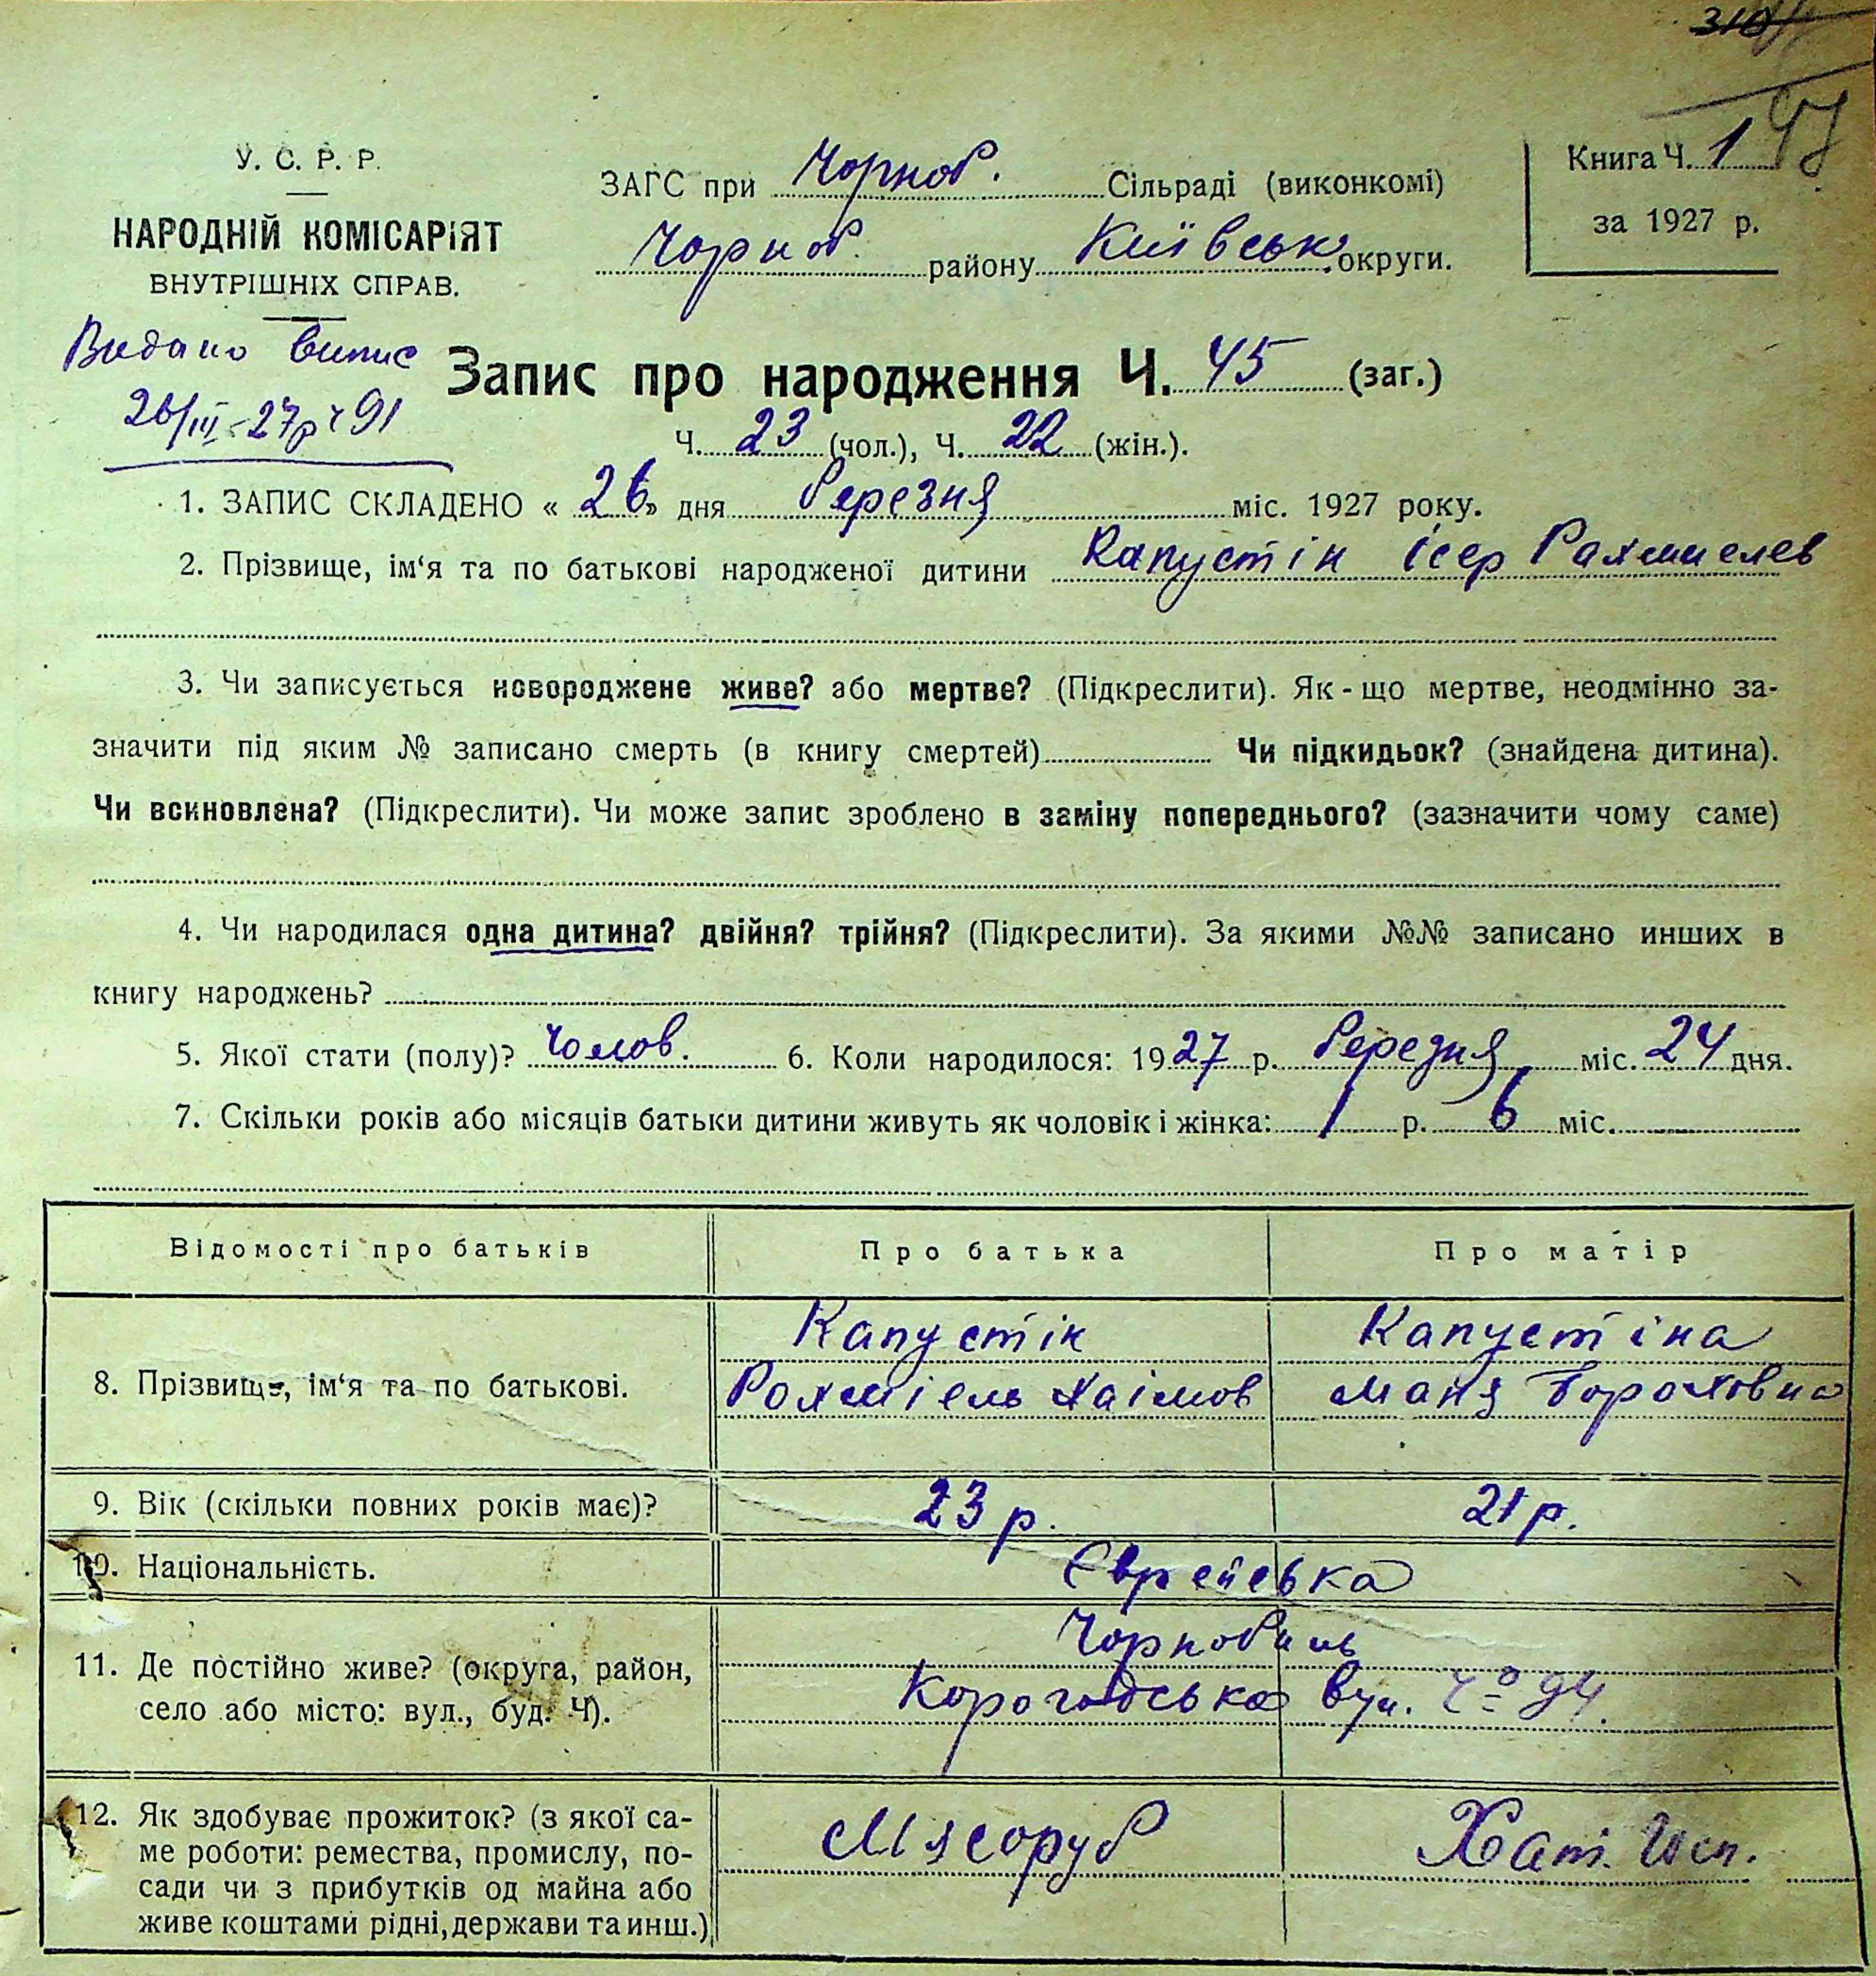 310
97
У. С. Р. Р.
НАРОДНІЙ КОМІСАРІЯТ
ВНУТРІШНІХ СПРАВ.
ЗАГС при Чорноб. Сільраді (виконкомі)
Чорноб. району Київськ. округи.
Книга Ч. 1
за 1927 р.
Видано випис
26/III-27р ч 91
Запис про народження Ч. 45 (заг.)
Ч. 23 (чол.), Ч. 22 (жін.).
1. ЗАПИС СКЛАДЕНО « 26 » дня березня міс. 1927 року.
2. Прізвище, ім‘я та по батькові народженої дитини Капустін Ісер Рахмиелев
3. Чи записується новороджене живе? або мертве? (Підкреслити). Як-що мертве, неодмінно за-
значити під яким № записано смерть (в книгу смертей) Чи підкидьок? (знайдена дитина).
Чи всиновлена? (Підкреслити). Чи може запис зроблено в заміну попереднього? (зазначити чому саме)
4. Чи народилася одна дитина? двійня? трійня? (Підкреслити). За якими №№ записано инших в
книгу народжень?
5. Якої стати (полу)? Чолов. 6. Коли народилося: 1927 р. березня міс. 24 дня.
7. Скільки років або місяців батьки дитини живуть як чоловік і жінка: 1 р. 6 міс.
Відомості про батьків Про батька Про матір
Капустін Капустіна
8. Прізвище, ім‘я та по батькові. Рахміель Хаімов Маня Бороховна
9. Вік (скільки повних років має)? 23 р. 21 р.
10. Національність. Єврейська
Чорнобиль
11. Де постійно живе? (округа, район,
село або місто: вул., буд. Ч). Корогодська вул. ч° 94.
12. Як здобуває прожиток? (з якої са-
ме роботи: ремества, промислу, по-
сади чи з прибутків од майна або
живе коштами рідні, держави та инш.)
Мясоруб Хат.